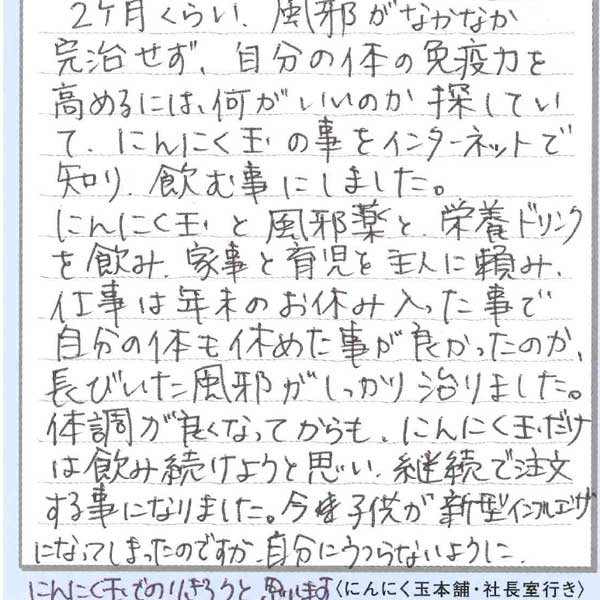 2ケ月くらい、風邪がなかなか
完治せず、自分の体の免疫力を
高めるには、何がいいのか探してい
て、にんにく玉の事をインターネットで
知り、飲む事にしました。
にんにく玉と風邪薬と、栄養ドリンク
を飲み、家事と育児を主人に頼み、
仕事は年末のお休み入った事で
自分の体も休めた事が良かったのか、
長びいた風邪がしっかり治りました。
体調が良くなってからも、にんにく玉だけ
は飲み続けようと思い、継続で注文
する事になりました。今は子供が新型インフルエンザ
になってしまったのですが、自分にうつらないように、
にんにく玉でのりきろうと思います〈にんにく玉本舗・社長室行き〉